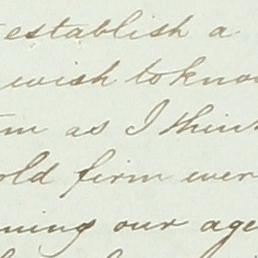 establish a
wish to know
as I think
old firm were
our age